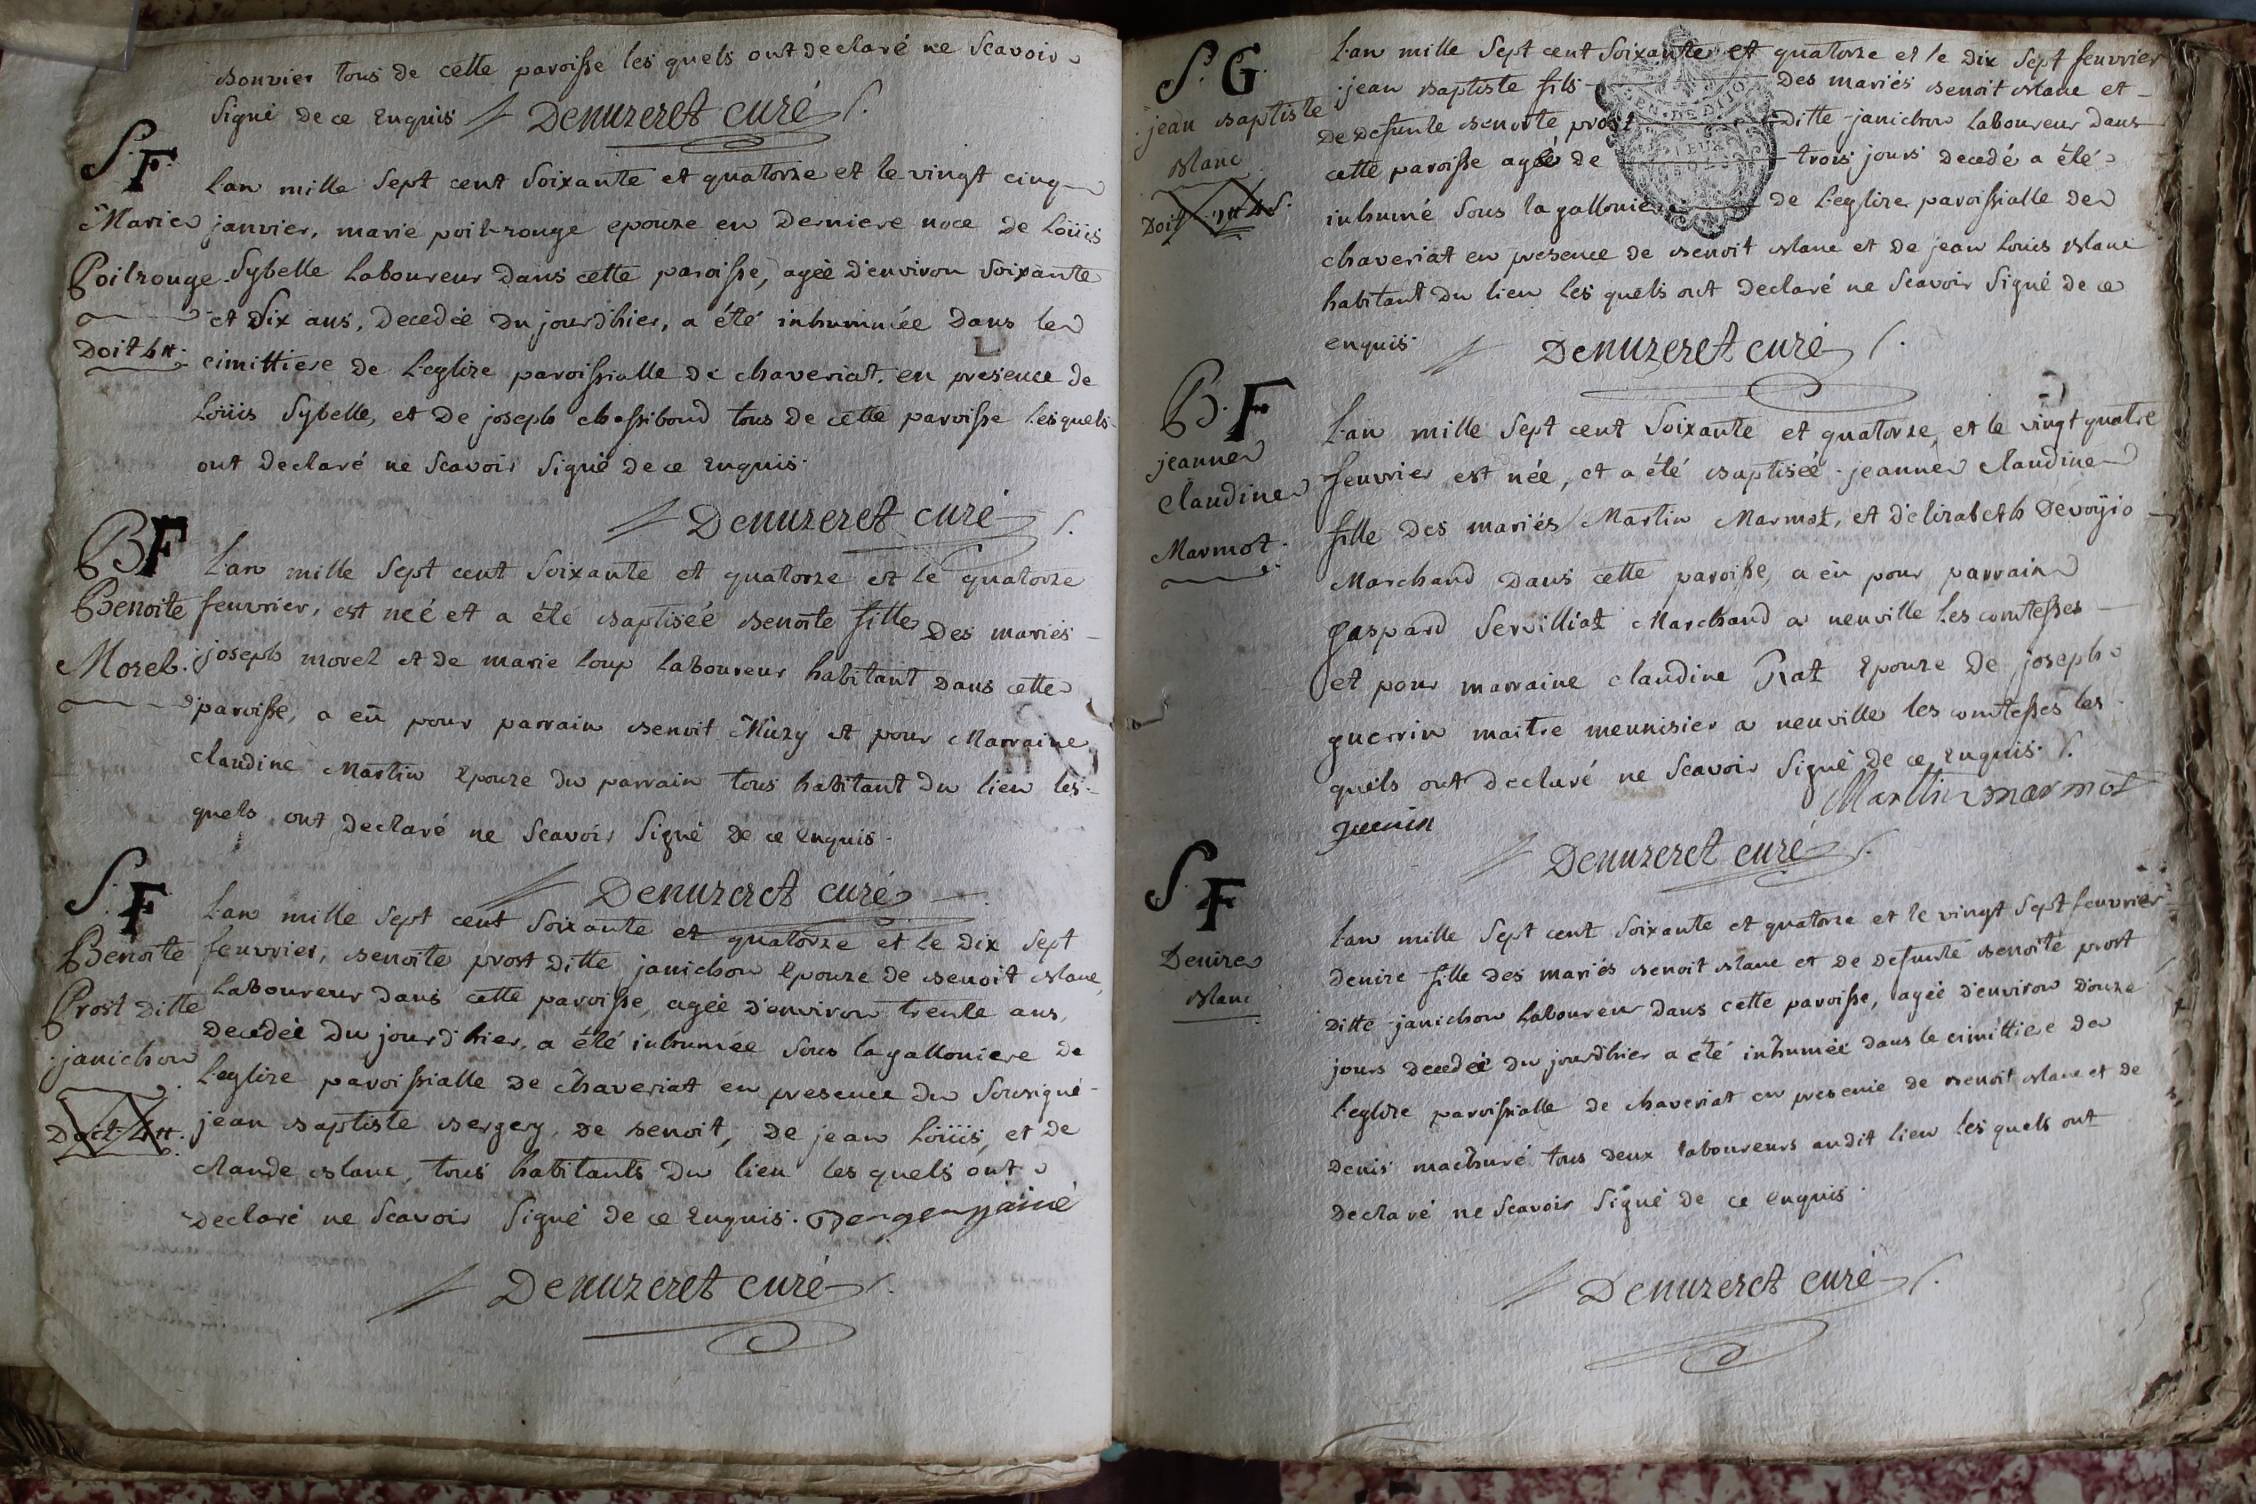 Bonvier tous de cette paroisse les quels ont declaré ne scavoir
signé de ce enquis Denuzeret curé
S. F
Marie
Poilrouge
Doit 4 tt
L'an mille sept cent soixante et quatorze et le vingt cinq
janvier, marie poil-rouge epouze en derniere noce de Loüis
Sybelle Laboureur dans cette paroisse, ageé d'environ soixante
et dix ans, decedeé du jourd'hier, a été inhumée dans le
cimittiere de L'eglize paroissialle de chaveriat. en presence de
Loüis Sybelle, et de joseph chassiboud tous de cette paroisse les quels
ont declaré ne scavoir signé de ce enquis.
Denuzeret curé
B F
Benoite
Morel.
L'an mille sept cent soixante et quatorze et le quatorze
feuvrier, est neé et a été baptiseé benoite fille des mariés
joseph morel et de marie loup Laboureur habitant dans cette
paroisse, a eû pour parrain benoit Muzy et pour Marraine
claudine Martin Epouze du parrain tous habitant du lieu les
quels ont declaré ne scavoir signé de ce enquis.
Denuzeret curé
S. F
Benoite
Prost ditte
janichon
Doit 4 tt.
L'an mille sept cent soixante et quatorze et le dix sept
feuvrier, benoite prost ditte janichon Epouze de benoit blanc,
Laboureur dans cette paroisse, ageé d'environ trente ans,
decedeé du jourd'hier, a été inhumée sous la galloniere de
L'eglize paroissialle de chaveriat en presence du sousigné
jean baptiste bergery, de benoit, de jean Loüis, et de
claude blanc, tous habitants du lieu les quels ont
declaré ne scavoir signé de ce enquis.
Denuzeret curé
S. G.
jean baptiste
blanc
Doit
L'an mille sept cent soixante et quatorze et le dix sept feuvrier
jean baptiste fils des mariés benoit blanc et
de defunte benoite prost ditte janichon Laboureur dans
cette paroisse agé de trois jours decedé a été
inhumé sous la gallonie de L'eglize paroissialle de
chaveriat en presence de benoit blanc et de jean Louis blanc
habitant du lieu les quels ont declaré ne scavoir signé de ce
enquis. Denuzeret curé
B. F
jeanne
claudine
Marmot.
L'an mille sept cent soixante et quatorze, et le vingt quatre
feuvrier est née, et a été baptiseé jeanne claudine
fille des mariés Martin Marmot, et d'elizabeth Devoyio
Marchand dans cette paroisse, a eû pour parrain
gaspard Servilliat Marchand a neuville les comtesses
et pour marraine claudine Rat Epouze de joseph
guerrin maitre meunisier a neuville les comtesses les
quels ont declaré ne scavoir signé de ce enquis.
Marttin marmot
Denuzeret curé
S. F
Denize
blanc
L'an mille sept cent soixante et quatorze et le vingt sept feuvrier
denize fille des mariés benoit blanc et de defunte benoite prost
ditte janichon Laboureur dans cette paroisse, ageé d'environ d'ouze
jours decedeé du jourd'hier a été inhumée dans le cimittiere de
L'eglize paroissialle de chaveriat en presence de benoit blanc et de
denis machuré tous deux laboureurs audit lieu les quels ont
declaré ne scavoir signé de ce enquis.
Denuzeret curé